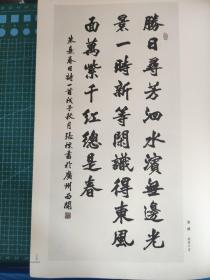 勝日尋芳泗水濱無邊光
景一時新等閒識得東風
面萬紫千紅總是春
朱熹春日詩一首戊子秋月張
書於廣州西關